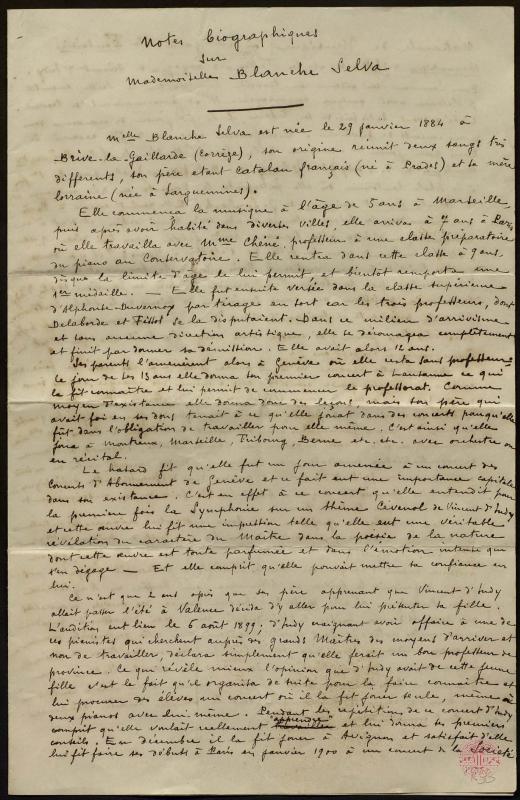 Notes biographiques
sur
Mademoiselle Blanche Selva
Melle Blanche Selva est née le 29 janvier 1884 à
Brive-la-Gaillarde (Corrèze), son origine réunit deux sangs très
differents, son père etant Catalan français (né à Prades) et sa mère
lorraine (née à Sarguemines).
Elle commença la musique à l'âge de 5 ans à Marseille
puis après avoir habité dans diverses villes, elle arriva à 7 ans à Paris
où elle travailla avec Mme Chéné, professeur à une classe préparatoire
du piano au Conservatoire. Elle rentra dans cette classe à 9 ans
dès que la limite d'âge le lui permit, et bientôt remporta une
1ère médaille. — Elle fut ensuite versée dans la classe supérieure
d'Alphonse Duvernoy par tirage au sort car les trois professeurs, dont
Delaborde et Fissot se la disputaient. Dans ce milieu d'arrivisme
et sans aucune direction artistique, elle se découragea complètement
et finit par donner sa démission. Elle avait alors 12 ans.
Ses parents l'amenèrent alors à Genève où elle resta sans professeur.
Le jour de ses 13 ans elle donna son premier concert à Lausanne ce qui
la fit connaître et lui permit de commencer le professorat. Comme
moyen d'existance elle donna donc des leçons, mais son père qui
avait foi en ses dons tenait à ce qu'elle jouat dans des concerts pour qu'elle
fût dans l'obligation de travailler pour elle même. C'est ainsi qu'elle
joua à Montreux, Marseille, Fribourg, Berne etc. etc. avec orchestre ou
en récital.
Le hasard fit qu'elle fut un jour amenée à un concert des
Concerts d'Abonnement de Genève et ce fait eut une importance capitale
dans son existance. C'est en effet à ce concert qu'elle entendit pour
la première fois la Symphonie sur un thème Cévenol de Vincent d'Indy
et cette œuvre lui fit une impression telle qu'elle eut une véritable
révélation du caractère du Maître dans la poésie de la nature
dont cette œuvre est toute parfumée et dans l'émotion intense qui
s'en dégage — Et elle comprit qu'elle pouvait mettre sa confiance en
lui.
Ce n'est que 2 ans après que son père apprenant que Vincent d'Indy
allait passer l'été à Valence décida d'y aller pour lui présenter sa fille.
L'audition eut lieu le 6 août 1899. d'Indy craignant avoir affaire à une de
ces pianistes qui cherchent auprès des grands Maîtres des moyens d'arriver et
non de travailler, déclara simplement qu'elle ferait un bon professeur de
province. Ce qui révèle mieux l'opinion que d'Indy avait de cette jeune
fille c'est le fait qu'il organisa de suite pour la faire connaître et
lui procurer des élèves un concert où il la fit jouer seule, même à
deux pianos avec lui-même. Pendant les répétitions de ce concert d'Indy
comprit qu'elle voulait reellement apprendre et lui donna ses premiers
conseils. En décembre il la fit jouer à Avignon et satisfait d'elle
lui fit faire ses débuts à Paris en janvier 1900 à un concert de la Société